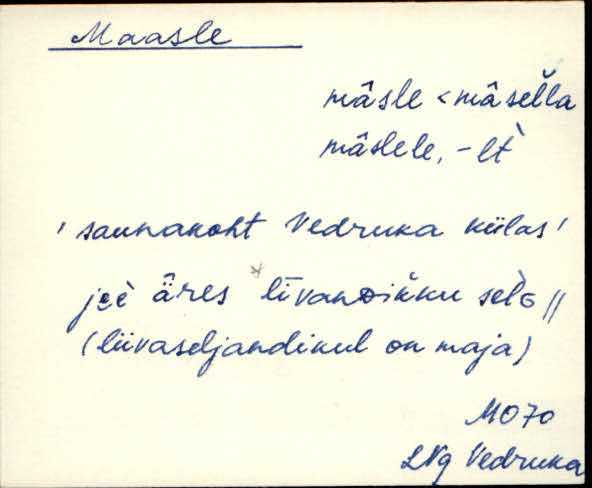 Maasle
mâsle < mâsella
mâslele, -lt
' saunakoht Vedruka külas '
jee äres līvandikku
(liivaseljandikul on maja)
MO70
LNg Vedruka